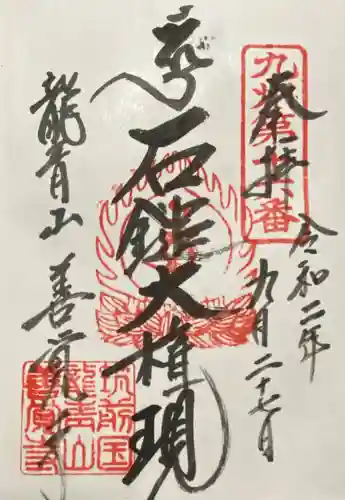 奉拝
令和二年
九月二十七日
石鎚大権現
龍青山
善覚寺
筑前国
龍青山
善覚寺